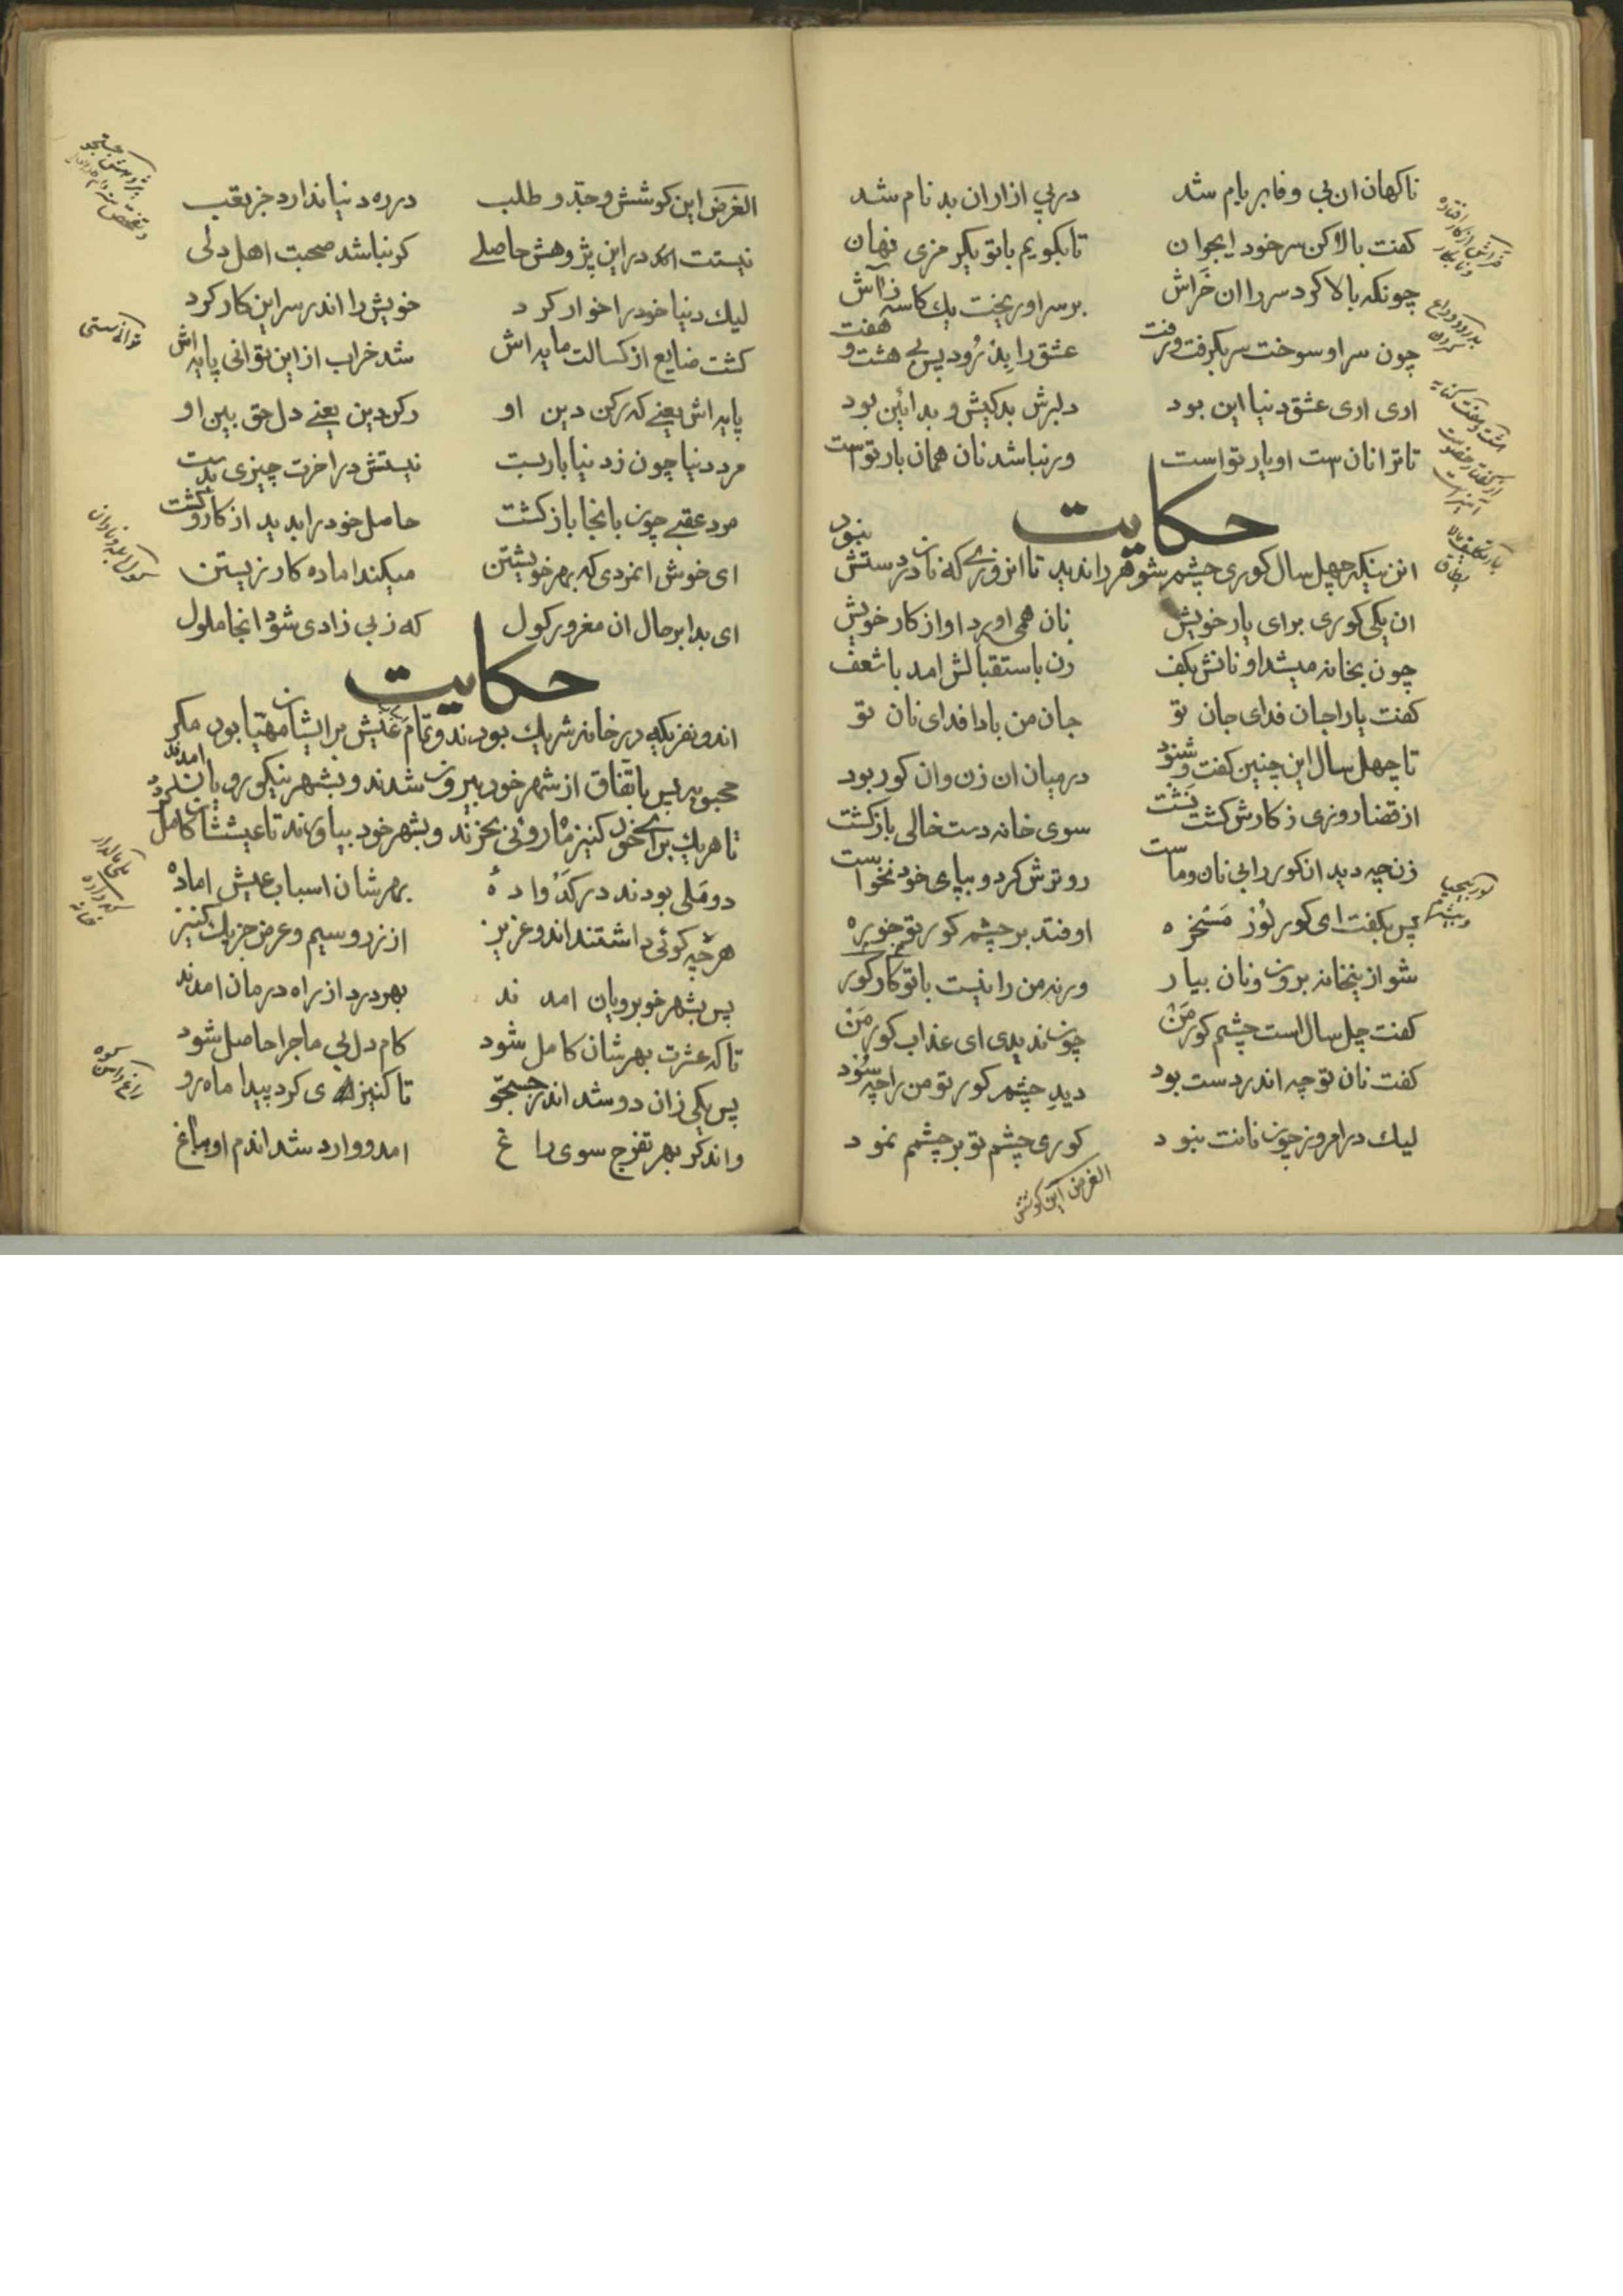 ناکهان ان بی وفا بر بام شد در پی ازار ان بد نام شد
کفت بالا کن سر خود ایجوان تا بکویم با تو یکر مزی نهان
چونکه بالا کرد سر را ان خَراش بر سر او ریخت یك کاسه ز آش
چون سر او سوخت سر بکرفت و رفت عشق را بِدْرُود پس بے هشت و هفت
اری اری عشق دنیا این بود دلبرش بد کیش و بد ائین بود
تا ترا نان ست او یار تو است ور نباشد نان همان بار تو است
حکایت
انزنیکه چهل سال کوری چشم شوهر را ندید تا انروزے که نان در دستش نبود
ان یکی کوری برای یار خویش نان همی اورد او از کار خویش
چون بخانه میشد او نانش بکف زن باستقبالش امد با شعف
کفت یارا جان فدای جان تو جان من بادا فدای نان تو
تا چهل سال این چنین کفت و شنود در میان ان زن و ان کور بود
از قضا روزی ز کارش کشت پَشْت سوی خانه دست خالی بازکشت
زن چه دید انکور را بی نان و ماست رو ترش کرد و بپای خود نخواست
پس بکفت ای کور لُوز مَسْخره اوفتد بر چشم کور تو خوره
شو از ینخانه برون و نان بیار ورنه من را نیست با تو کار کور
کفت چل سال است چشم کور مَنْ چون ندیدی ای عذاب کور مَنْ
کفت نان تو چه اندر دست بود دیدِ چشم کور تو من را چه سُود
لیك در امروز چون نانت نبود کوری چشم تو بر چشمم نمود
الغرض این کوشش
الغرض این کوشش و جدّ و طلب در ره دنیا ندارد جز تعب
نیستت اندر این پژوهش حاصلے کر نباشد صحبت اهل دلی
لیك دنیا خود را خوار کرد خویش را اندر سر این کار کرد
کشت ضایع از کسالت مایه اش شد خراب از این توانی پایه اش
پایه اش یعنے که رکن دین او رکن دین یعنے دل حق بین او
مرد دنیا چون ز دنیا بار بست نیستش در اخرت چیزی بدست
مرد عقبے چون بانجا باز کشت حاصل خود را بدید از کار و کشت
ای خوش انمردی که بهر خویشتن میکند اماده کار زیستن
ای بدا بر حال ان مغرور کول که ز بی زادی شود انجا ملول
حکایت
اندو نفریکه در خانه شریك بودند و تمام عَیْش برایشان مهیّا بود مکر
محبوبه پس باتّفاق از شهر خود بیرون شدند و بشهر نیکو رویان امدند
تا هر یك برای خود کنیز ماه روئی بخرند و بشهر خود بیاورند تا عیششان کامل کردد
دو مَلی بودند در کَدْواده بهرشان اسباب عیش اماده
هرچه کوئی داشتند اندو عزیز از زر و سیم و عرض جز یك کنیز
پس بشهر خوبرویان امدند بهر درد از راه درمان امدند
تا که عشرت بهرشان کامل شود کام دل بی ماجرا حاصل شود
پس یکی زان دو شد اندر جستجو تا کنیزه ی کرد پیدا ماه رو
واندکر بهر تفرج سوی راغ امد و وارد شد اندم او بباغ